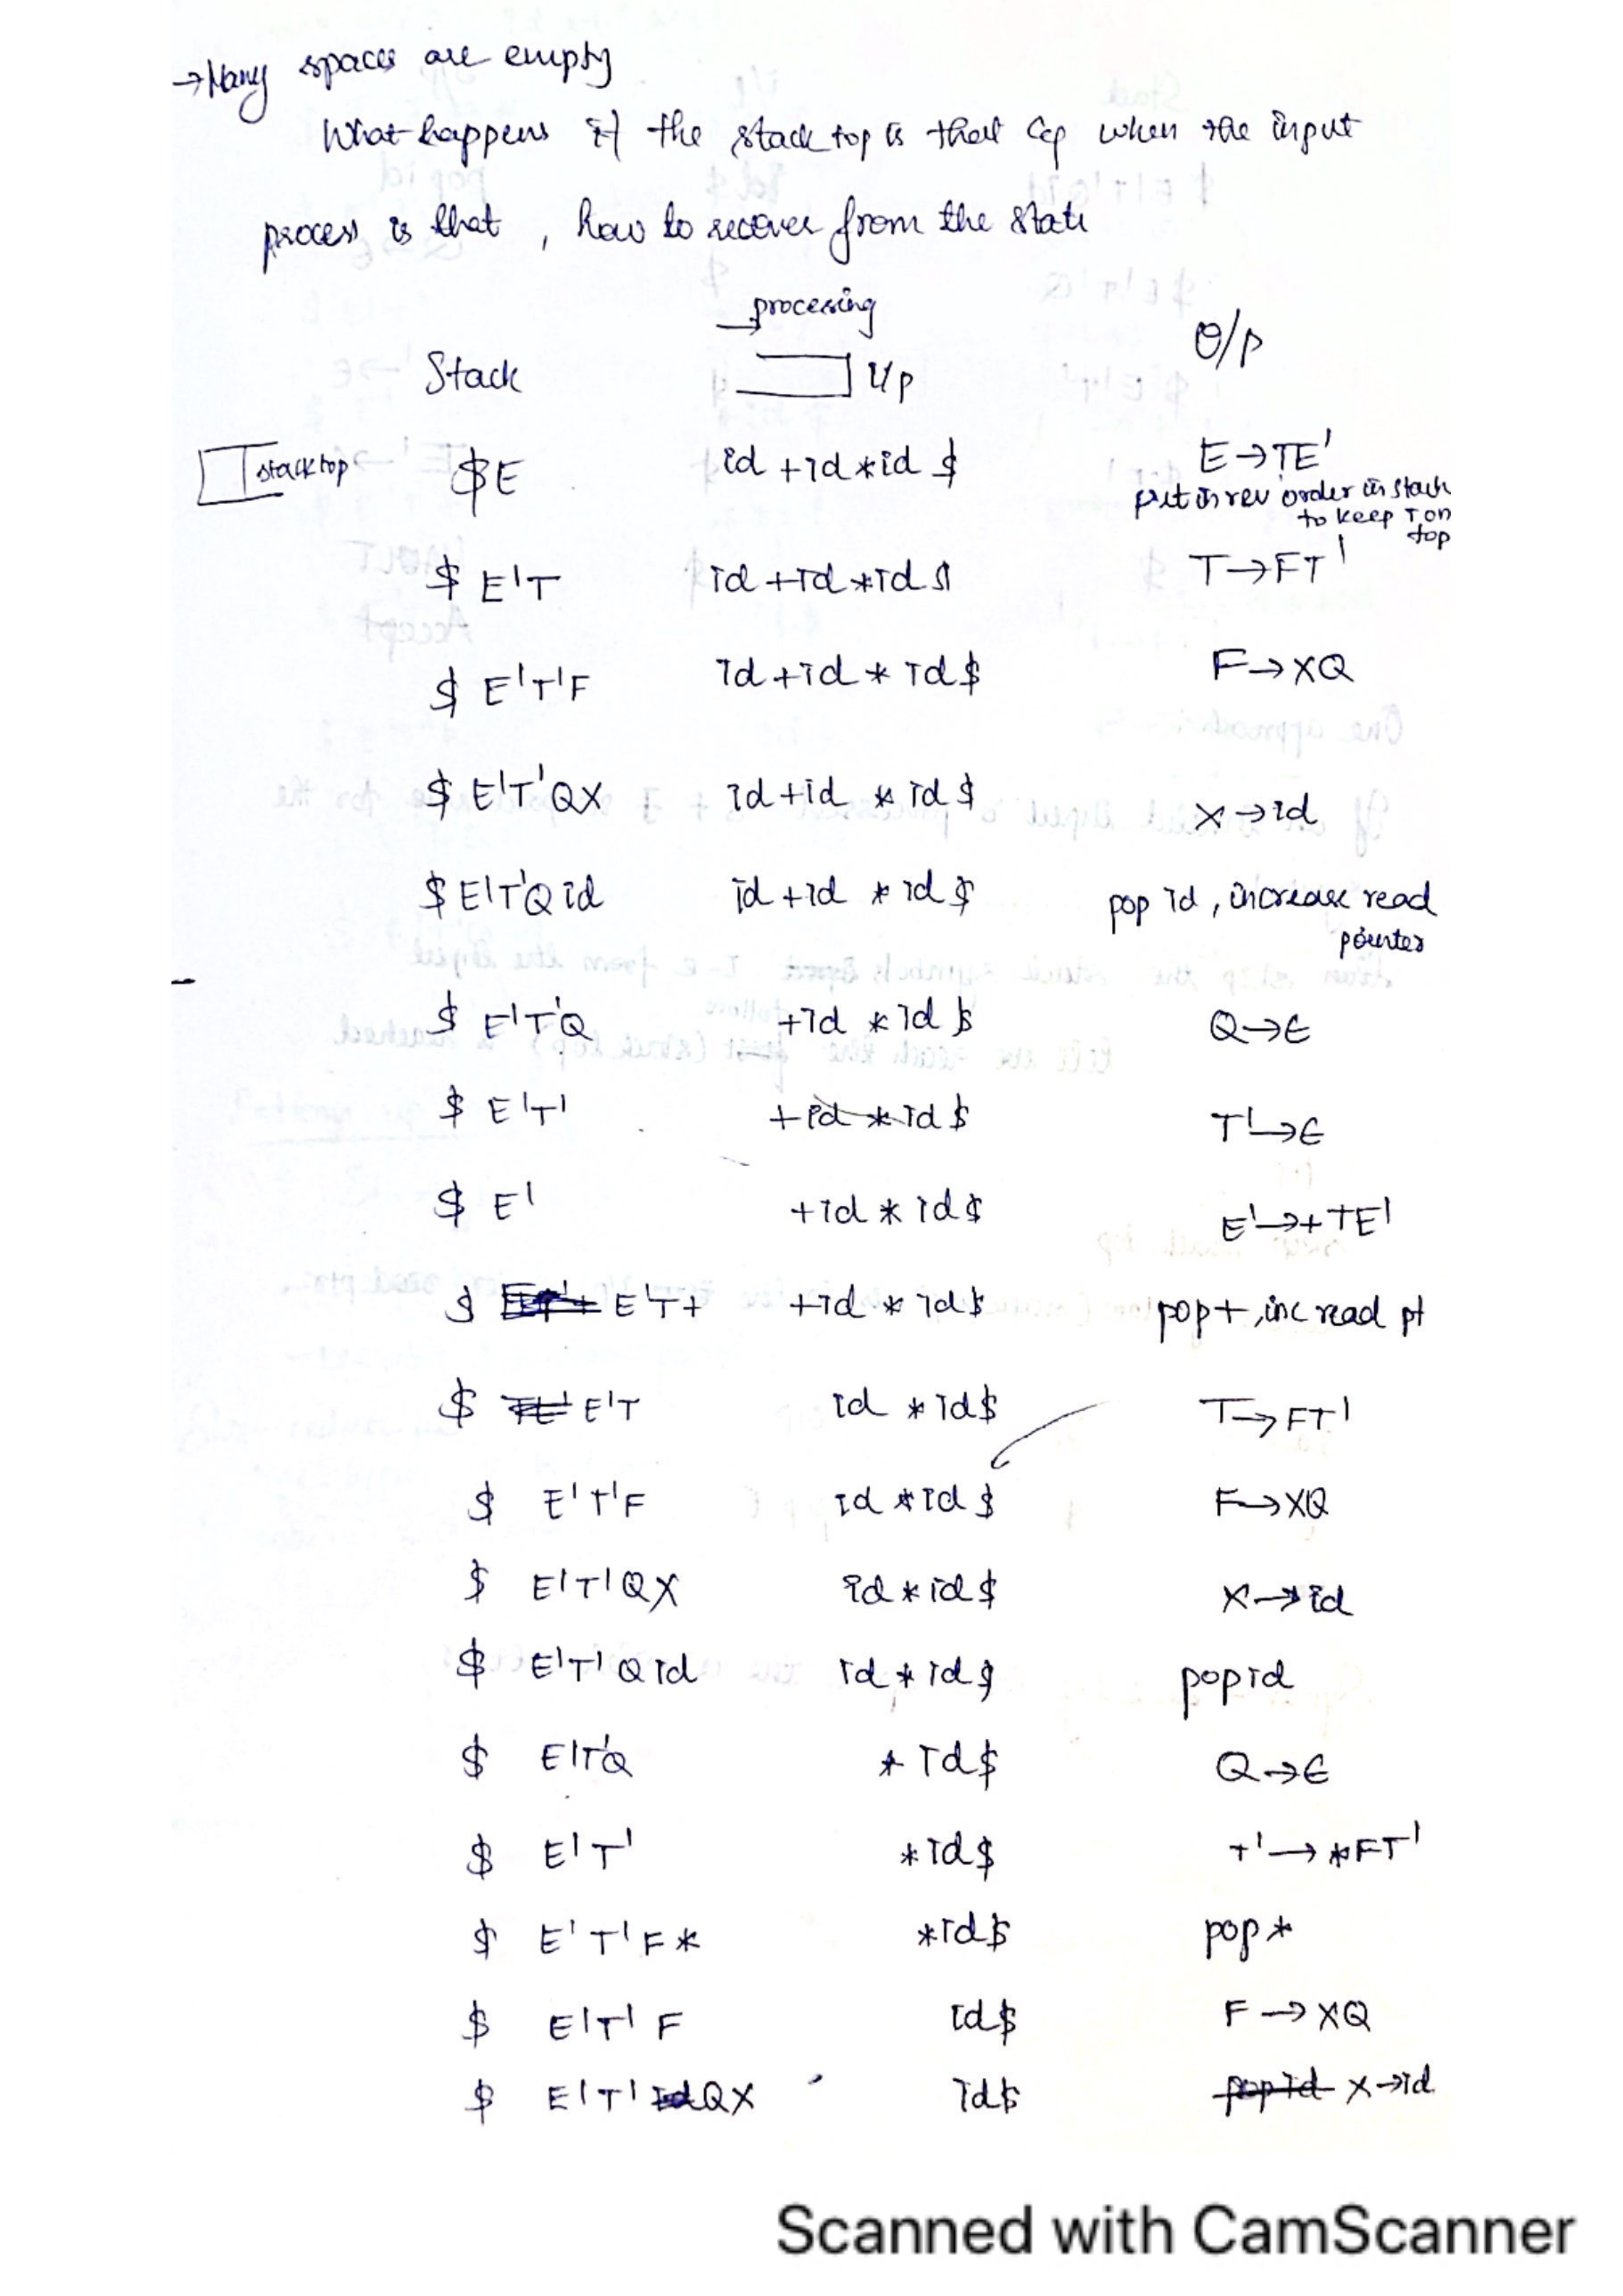 → Many spaces are empty
What happens if the stack top is that cap when the input
process is that , how to recover from the state
→ processing
Stack I/p O/p
stack top $E id +id *id $ E→TE'
put in rev order in stack
to keep T on
top
$ E'T id +id *id $ T→FT'
$ E'T'F id +id * id $ F→XQ
$ E'T'QX id +id * id $ X→id
$ E'T'Q id id +id * id $ pop id , increase read
pointer
$ E'T'Q +id * id $ Q→ϵ
$ E'T' +id * id $ T'→ϵ
$ E' +id * id $ E'→+TE'
$ E'T+ +id * id $ pop + ,inc read pt
$ E'T id * id $ T→FT'
$ E'T'F id * id $ F→XQ
$ E'T'QX id * id $ X→id
$ E'T'Q id id * id $ pop id
$ E'T'Q * id $ Q→ϵ
$ E'T' * id $ T'→*FT'
$ E'T'F * * id $ pop *
$ E'T' F id $ F→XQ
$ E'T' QX id $ pop id X→id
Scanned with CamScanner